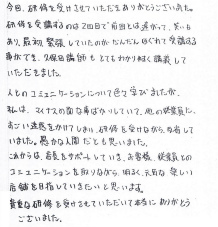 今回、研修を受けさせていただきありがとうございました。
研修を受講するのは2回目で前回とは違がって、笑いも
あり、最初緊張していたのがだんだんほぐれて受講する
事ができ、久保田講師もとてもわかりやすく講義して
いただきました。
人とのコミュニケーションについて色々学びましたが、
私は、マイナスの面な事ばかりしていて、他の従業員に、
すごい迷惑をかけてしまい、研修を受けながら、反省して
いました。愚かな人間だとも思いました。
これからは、店長をサポートしていき、お客様、従業員との
コミュニケーションを取りながら、明るく、元気な楽しい
店舗を目指していきたいと思います。
貴重な研修を受けさせていただいて本当にありがとう
ございました。